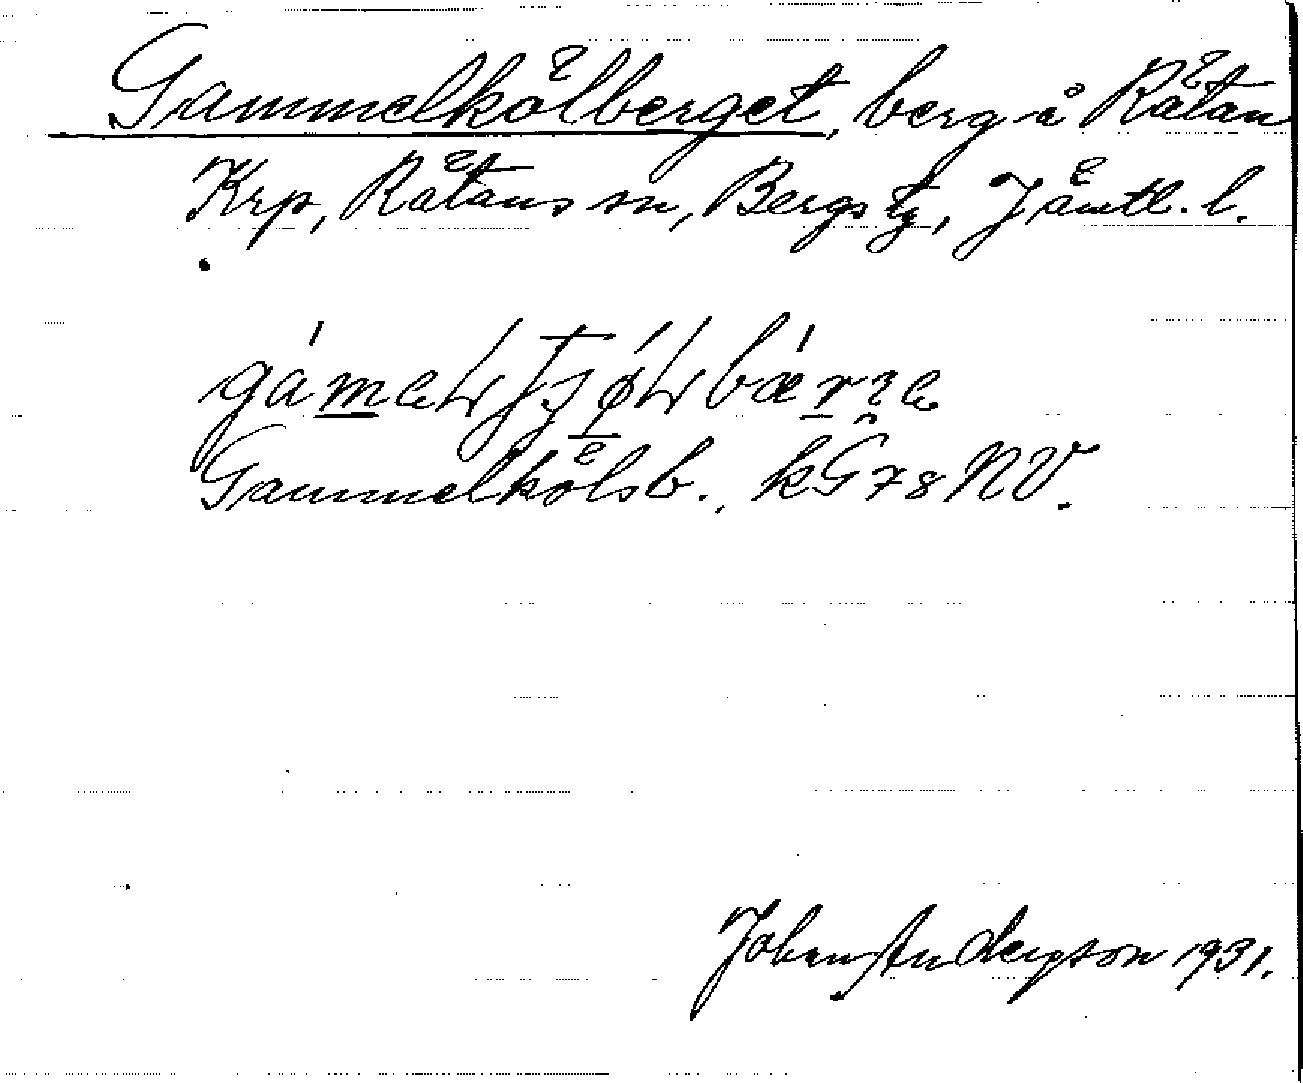 Gammelkölberget, berg å Rätan
Krp, Rätans sn, Bergs tg, Jämtl. l.
Gammelkölsb., kG 78 NV.
Johan Andersson 1931.